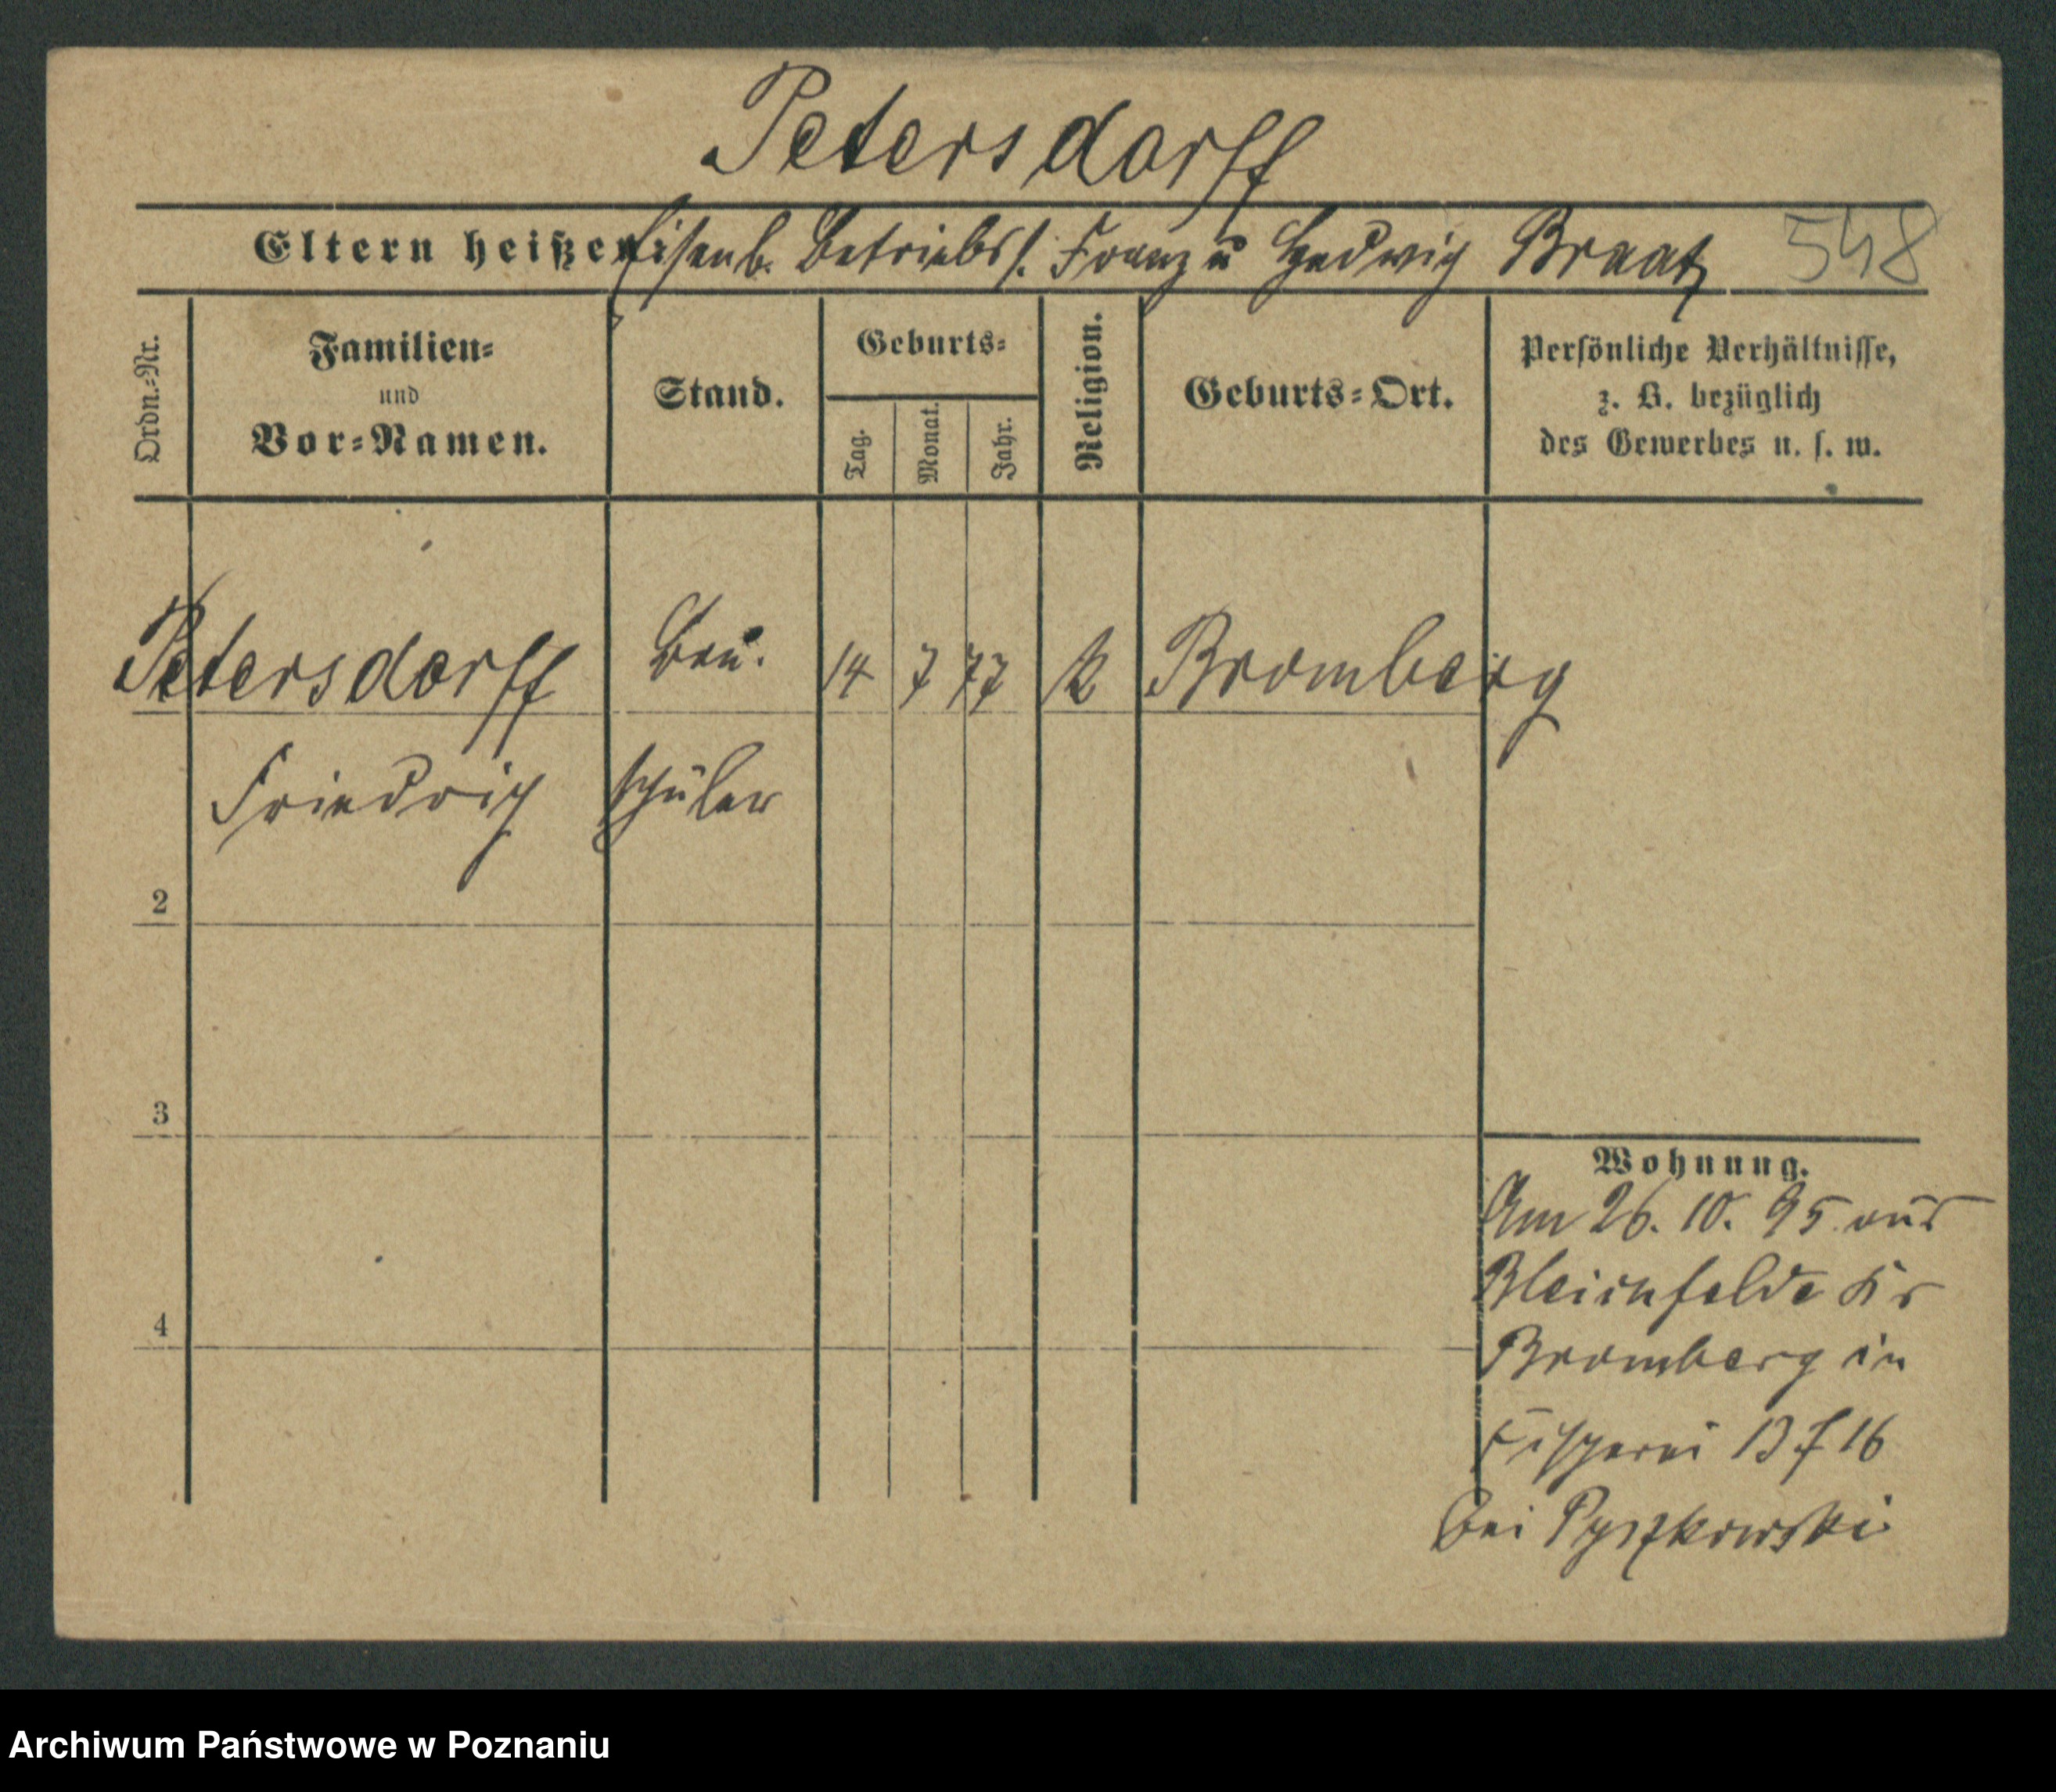 Petersdorff
Eltern heißen Eisenb. Betriebss. Franz u Hedwig Braatz 548
Ordn.-Nr.
Familien-
und
Vor-Namen.
Stand.
Geburts-
Tag.
Monat.
Jahr.
Religion.
Geburts-Ort.
Persönliche Verhältnisse,
z. B. bezüglich
des Gewerbes u. s. w.
Petersdorff Bau. 14 7 77 k Bromberg
Friedrich schüler
2
3
4
Wohnung.
Am 26. 10. 95 aus
Kr
Bromberg in
Fischerei 13 f 16
bei Pyszkowski
Archiwum Państwowe w Poznaniu